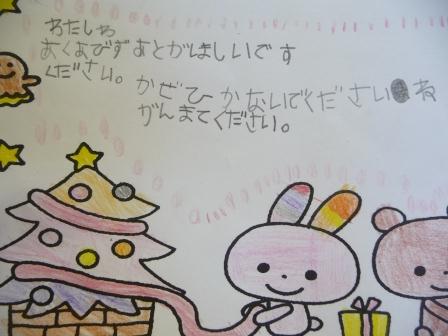 わたしわ
あくあびずあとがほしいです
ください。
かぜひかないでくださいね
がんまてください。